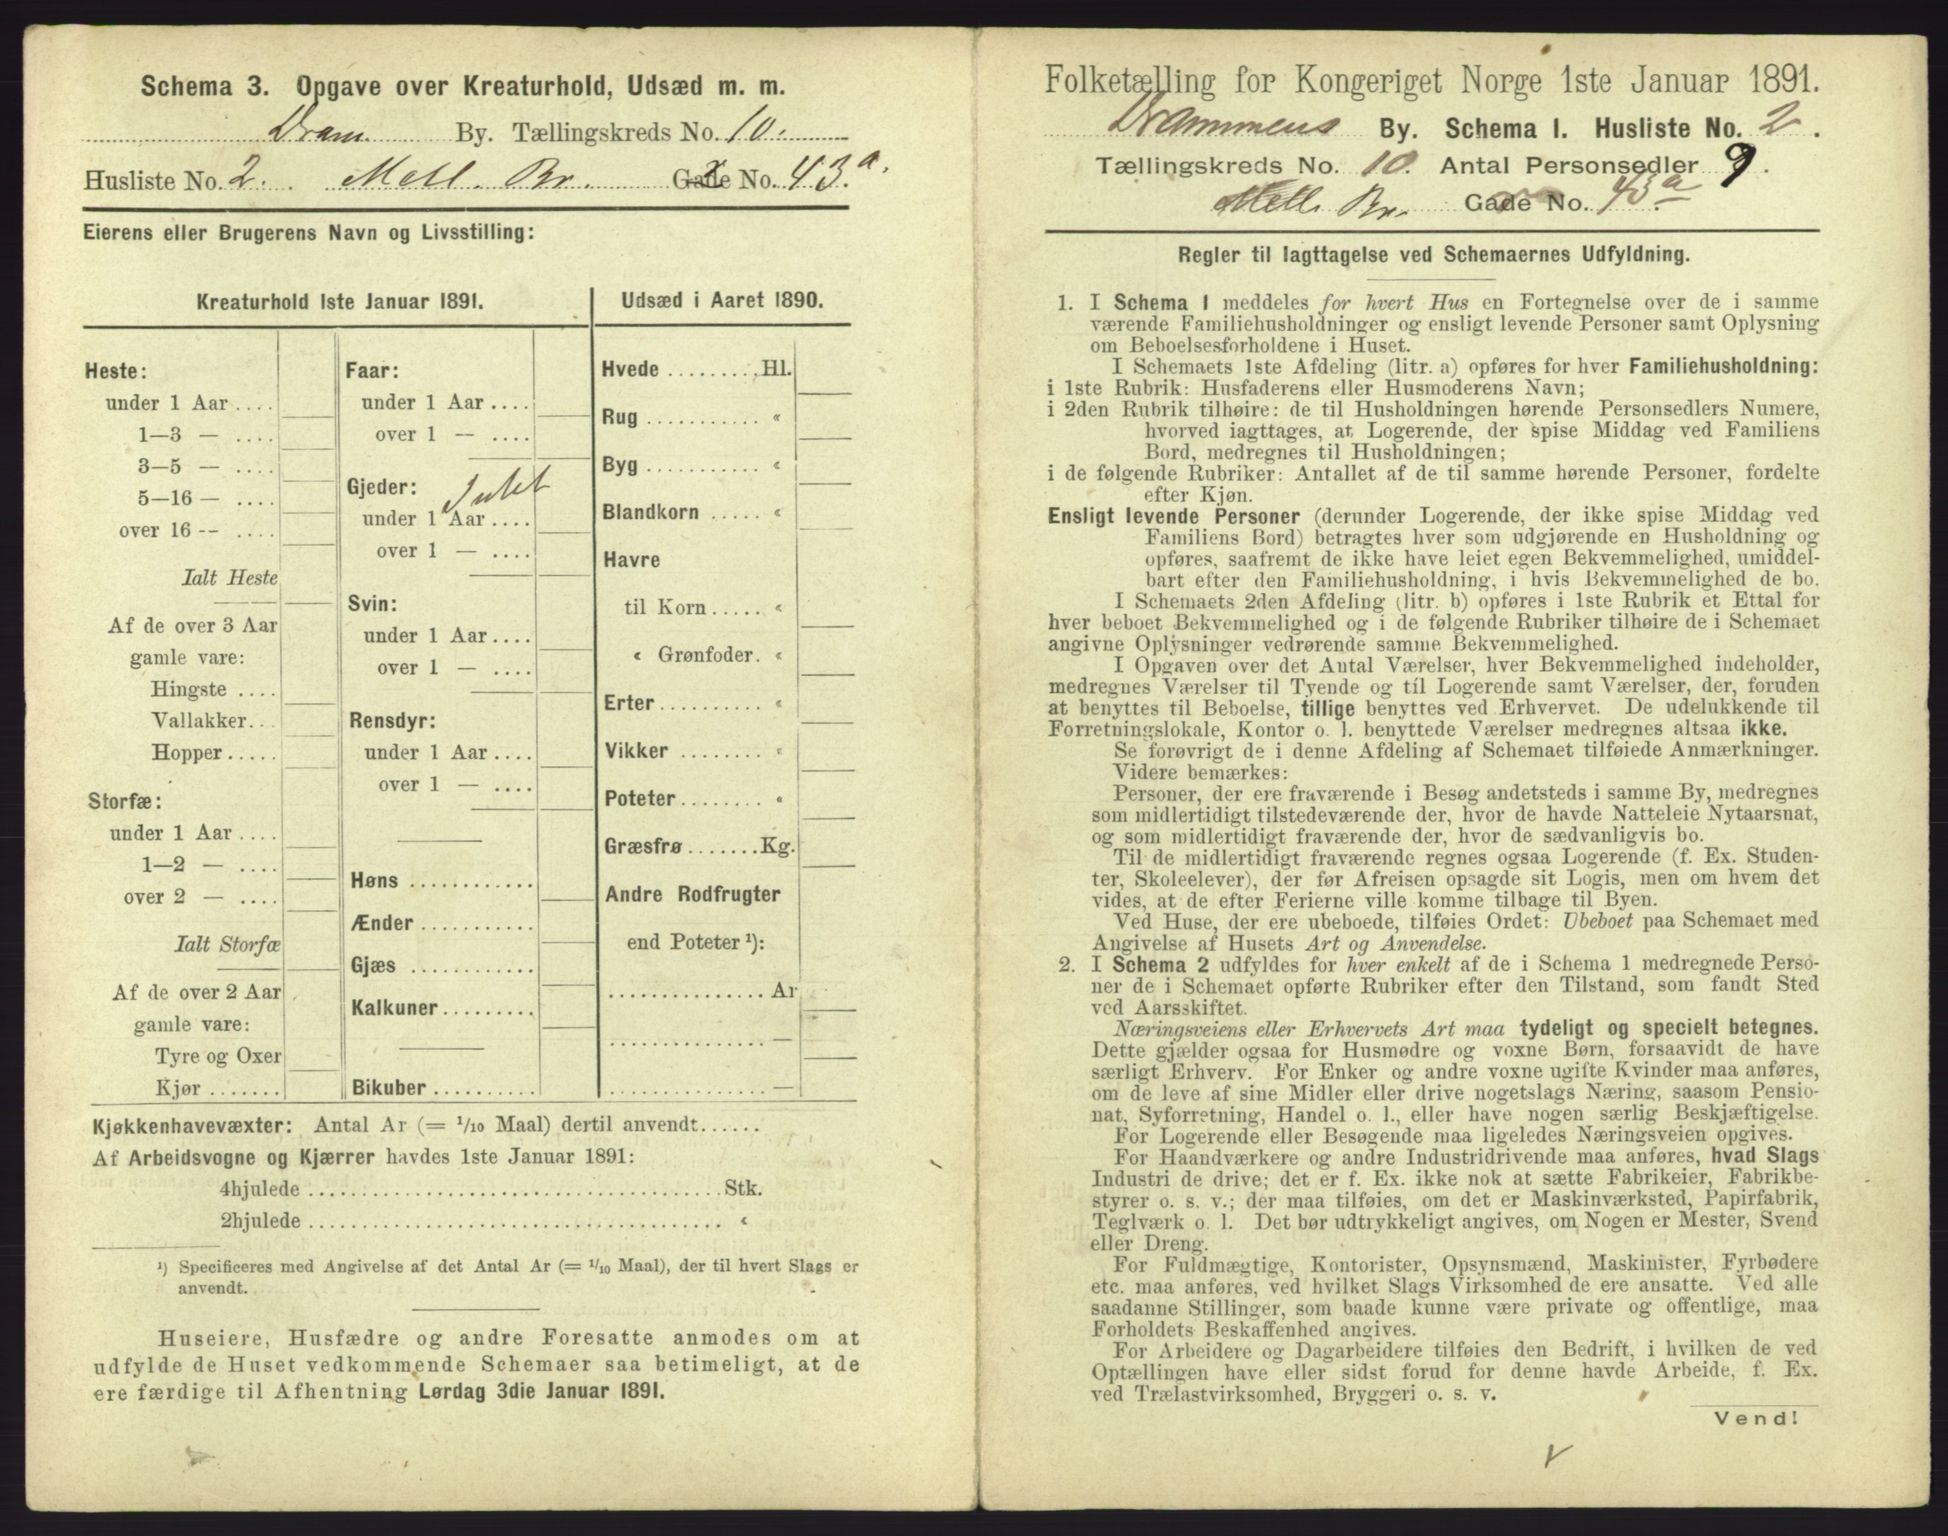 Schema 3. Opgave over Kreaturhold, Udsæd m. m.
Dram. By. Tællingskreds No. 10.
Husliste No. 2. Mell. Br. Gade No. 43.a.
Eierens eller Brugerens Navn og Livsstilling:
Kreaturhold 1ste Januar 1891.
Heste:
under 1 Aar....
1—3 — ....
3—5 — ....
5—16 — ....
over 16 -- ....
Ialt Heste
Af de over 3 Aar
gamle vare:
Hingste ....
Vallakker...
Hopper.....
Storfæ:
under 1 Aar ....
1—2 — ....
over 2 — ....
Ialt Storfæ
Af de over 2 Aar
gamle vare:
Tyre og Oxer
Kjør .......
Faar:
under 1 Aar ....
over 1 — ....
Gjeder: Intet
under 1 Aar ....
over 1 — ....
Svin:
under 1 Aar ....
over 1 — ....
Rensdyr:
under 1 Aar ....
over 1 — ....
Høns ............
Ænder ...........
Gjæs ............
Kalkuner .........
Bikuber ..........
Udsæd i Aaret 1890.
Hvede ........ Hl.
Rug ........... «
Byg ........... «
Blandkorn ..... «
Havre
til Korn ..... «
« Grønfoder. «
Erter .......... «
Vikker ........ «
Poteter ........ «
Græsfrø ....... Kg.
Andre Rodfrugter
end Poteter ¹):
............... Ar
............... —
............... —
Kjøkkenhavevæxter: Antal Ar (= 1/10 Maal) dertil anvendt......
Af Arbeidsvogne og Kjærrer havdes 1ste Januar 1891:
4hjulede ........................................ Stk.
2hjulede ........................................ «
¹) Specificeres med Angivelse af det Antal Ar (= 1/10 Maal), der til hvert Slags er
anvendt.
Huseiere, Husfædre og andre Foresatte anmodes om at
udfylde de Huset vedkommende Schemaer saa betimeligt, at de
ere færdige til Afhentning Lørdag 3die Januar 1891.
Folketælling for Kongeriget Norge 1ste Januar 1891.
Drammens By. Schema I. Husliste No. 2.
Tællingskreds No. 10. Antal Personsedler 9.
Mell. Br. Gade No. 43a
Regler til Iagttagelse ved Schemaernes Udfyldning.
1. I Schema 1 meddeles for hvert Hus en Fortegnelse over de i samme
værende Familiehusholdninger og ensligt levende Personer samt Oplysning
om Beboelsesforholdene i Huset.
I Schemaets 1ste Afdeling (litr. a) opføres for hver Familiehusholdning:
i 1ste Rubrik: Husfaderens eller Husmoderens Navn;
i 2den Rubrik tilhøire: de til Husholdningen hørende Personsedlers Numere,
hvorved iagttages, at Logerende, der spise Middag ved Familiens
Bord, medregnes til Husholdningen;
i de følgende Rubriker: Antallet af de til samme hørende Personer, fordelte
efter Kjøn.
Ensligt levende Personer (derunder Logerende, der ikke spise Middag ved
Familiens Bord) betragtes hver som udgjørende en Husholdning og
opføres, saafremt de ikke have leiet egen Bekvemmelighed, umiddel-
bart efter den Familiehusholdning, i hvis Bekvemmelighed de bo.
I Schemaets 2den Afdeling (litr. b) opføres i 1ste Rubrik et Ettal for
hver beboet Bekvemmelighed og i de følgende Rubriker tilhøire de i Schemaet
angivne Oplysninger vedrørende samme Bekvemmelighed.
I Opgaven over det Antal Værelser, hver Bekvemmelighed indeholder,
medregnes Værelser til Tyende og til Logerende samt Værelser, der, foruden
at benyttes til Beboelse, tillige benyttes ved Erhvervet. De udelukkende til
Forretningslokale, Kontor o. l. benyttede Værelser medregnes altsaa ikke.
Se forøvrigt de i denne Afdeling af Schemaet tilføiede Anmærkninger.
Videre bemærkes:
Personer, der ere fraværende i Besøg andetsteds i samme By, medregnes
som midlertidigt tilstedeværende der, hvor de havde Natteleie Nytaarsnat,
og som midlertidigt fraværende der, hvor de sædvanligvis bo.
Til de midlertidigt fraværende regnes ogsaa Logerende (f. Ex. Studen-
ter, Skoleelever), der før Afreisen opsagde sit Logis, men om hvem det
vides, at de efter Ferierne ville komme tilbage til Byen.
Ved Huse, der ere ubeboede, tilføies Ordet: Ubeboet paa Schemaet med
Angivelse af Husets Art og Anvendelse.
2. I Schema 2 udfyldes for hver enkelt af de i Schema 1 medregnede Perso-
ner de i Schemaet opførte Rubriker efter den Tilstand, som fandt Sted
ved Aarsskiftet.
Næringsveiens eller Erhvervets Art maa tydeligt og specielt betegnes.
Dette gjælder ogsaa for Husmødre og voxne Børn, forsaavidt de have
særligt Erhverv. For Enker og andre voxne ugifte Kvinder maa anføres,
om de leve af sine Midler eller drive nogetslags Næring, saasom Pensio-
nat, Syforretning, Handel o. l., eller have nogen særlig Beskjæftigelse.
For Logerende eller Besøgende maa ligeledes Næringsveien opgives.
For Haandværkere og andre Industridrivende maa anføres, hvad Slags
Industri de drive; det er f. Ex. ikke nok at sætte Fabrikeier, Fabrikbe-
styrer o. s. v.; der maa tilføies, om det er Maskinværksted, Papirfabrik,
Teglværk o. l. Det bør udtrykkeligt angives, om Nogen er Mester, Svend
eller Dreng.
For Fuldmægtige, Kontorister, Opsynsmænd, Maskinister, Fyrbødere
etc. maa anføres, ved hvilket Slags Virksomhed de ere ansatte. Ved alle
saadanne Stillinger, som baade kunne være private og offentlige, maa
Forholdets Beskaffenhed angives.
For Arbeidere og Dagarbeidere tilføies den Bedrift, i hvilken de ved
Optællingen have eller sidst forud for denne havde Arbeide, f. Ex.
ved Trælastvirksomhed, Bryggeri o. s. v.
Vend!